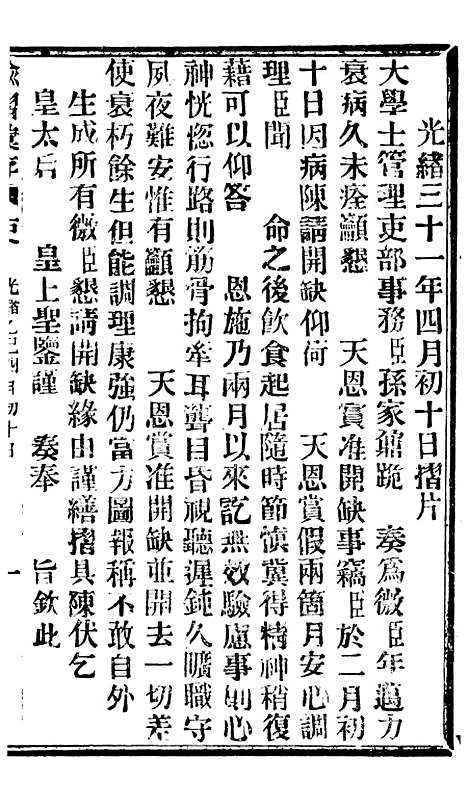 光緒三十一年四月初十日摺片
大學士管理吏部事務臣孫家鼐跪 奏爲微臣年邁力
衰病久未痊籲懇 天恩賞准開缺事竊臣於二月初
十日因病陳請開缺仰荷 天恩賞假兩箇月安心調
理臣聞 命之後飲食起居隨時節慎冀得精神稍復
藉可以仰答 恩施乃兩月以來訖無效驗慮事則心
神恍惚行路則筋骨拘牽耳聾目昏視聽遲鈍久曠職守
夙夜難安惟有籲懇 天恩賞准開缺並開去一切差
使衰朽餘生但能調理康強仍當力圖報稱不敢自外
生成所有微臣懇請開缺緣由謹繕摺具陳伏乞
皇太后 皇上聖鑒謹 奏奉 旨欽此
光緒 四月初十日 一